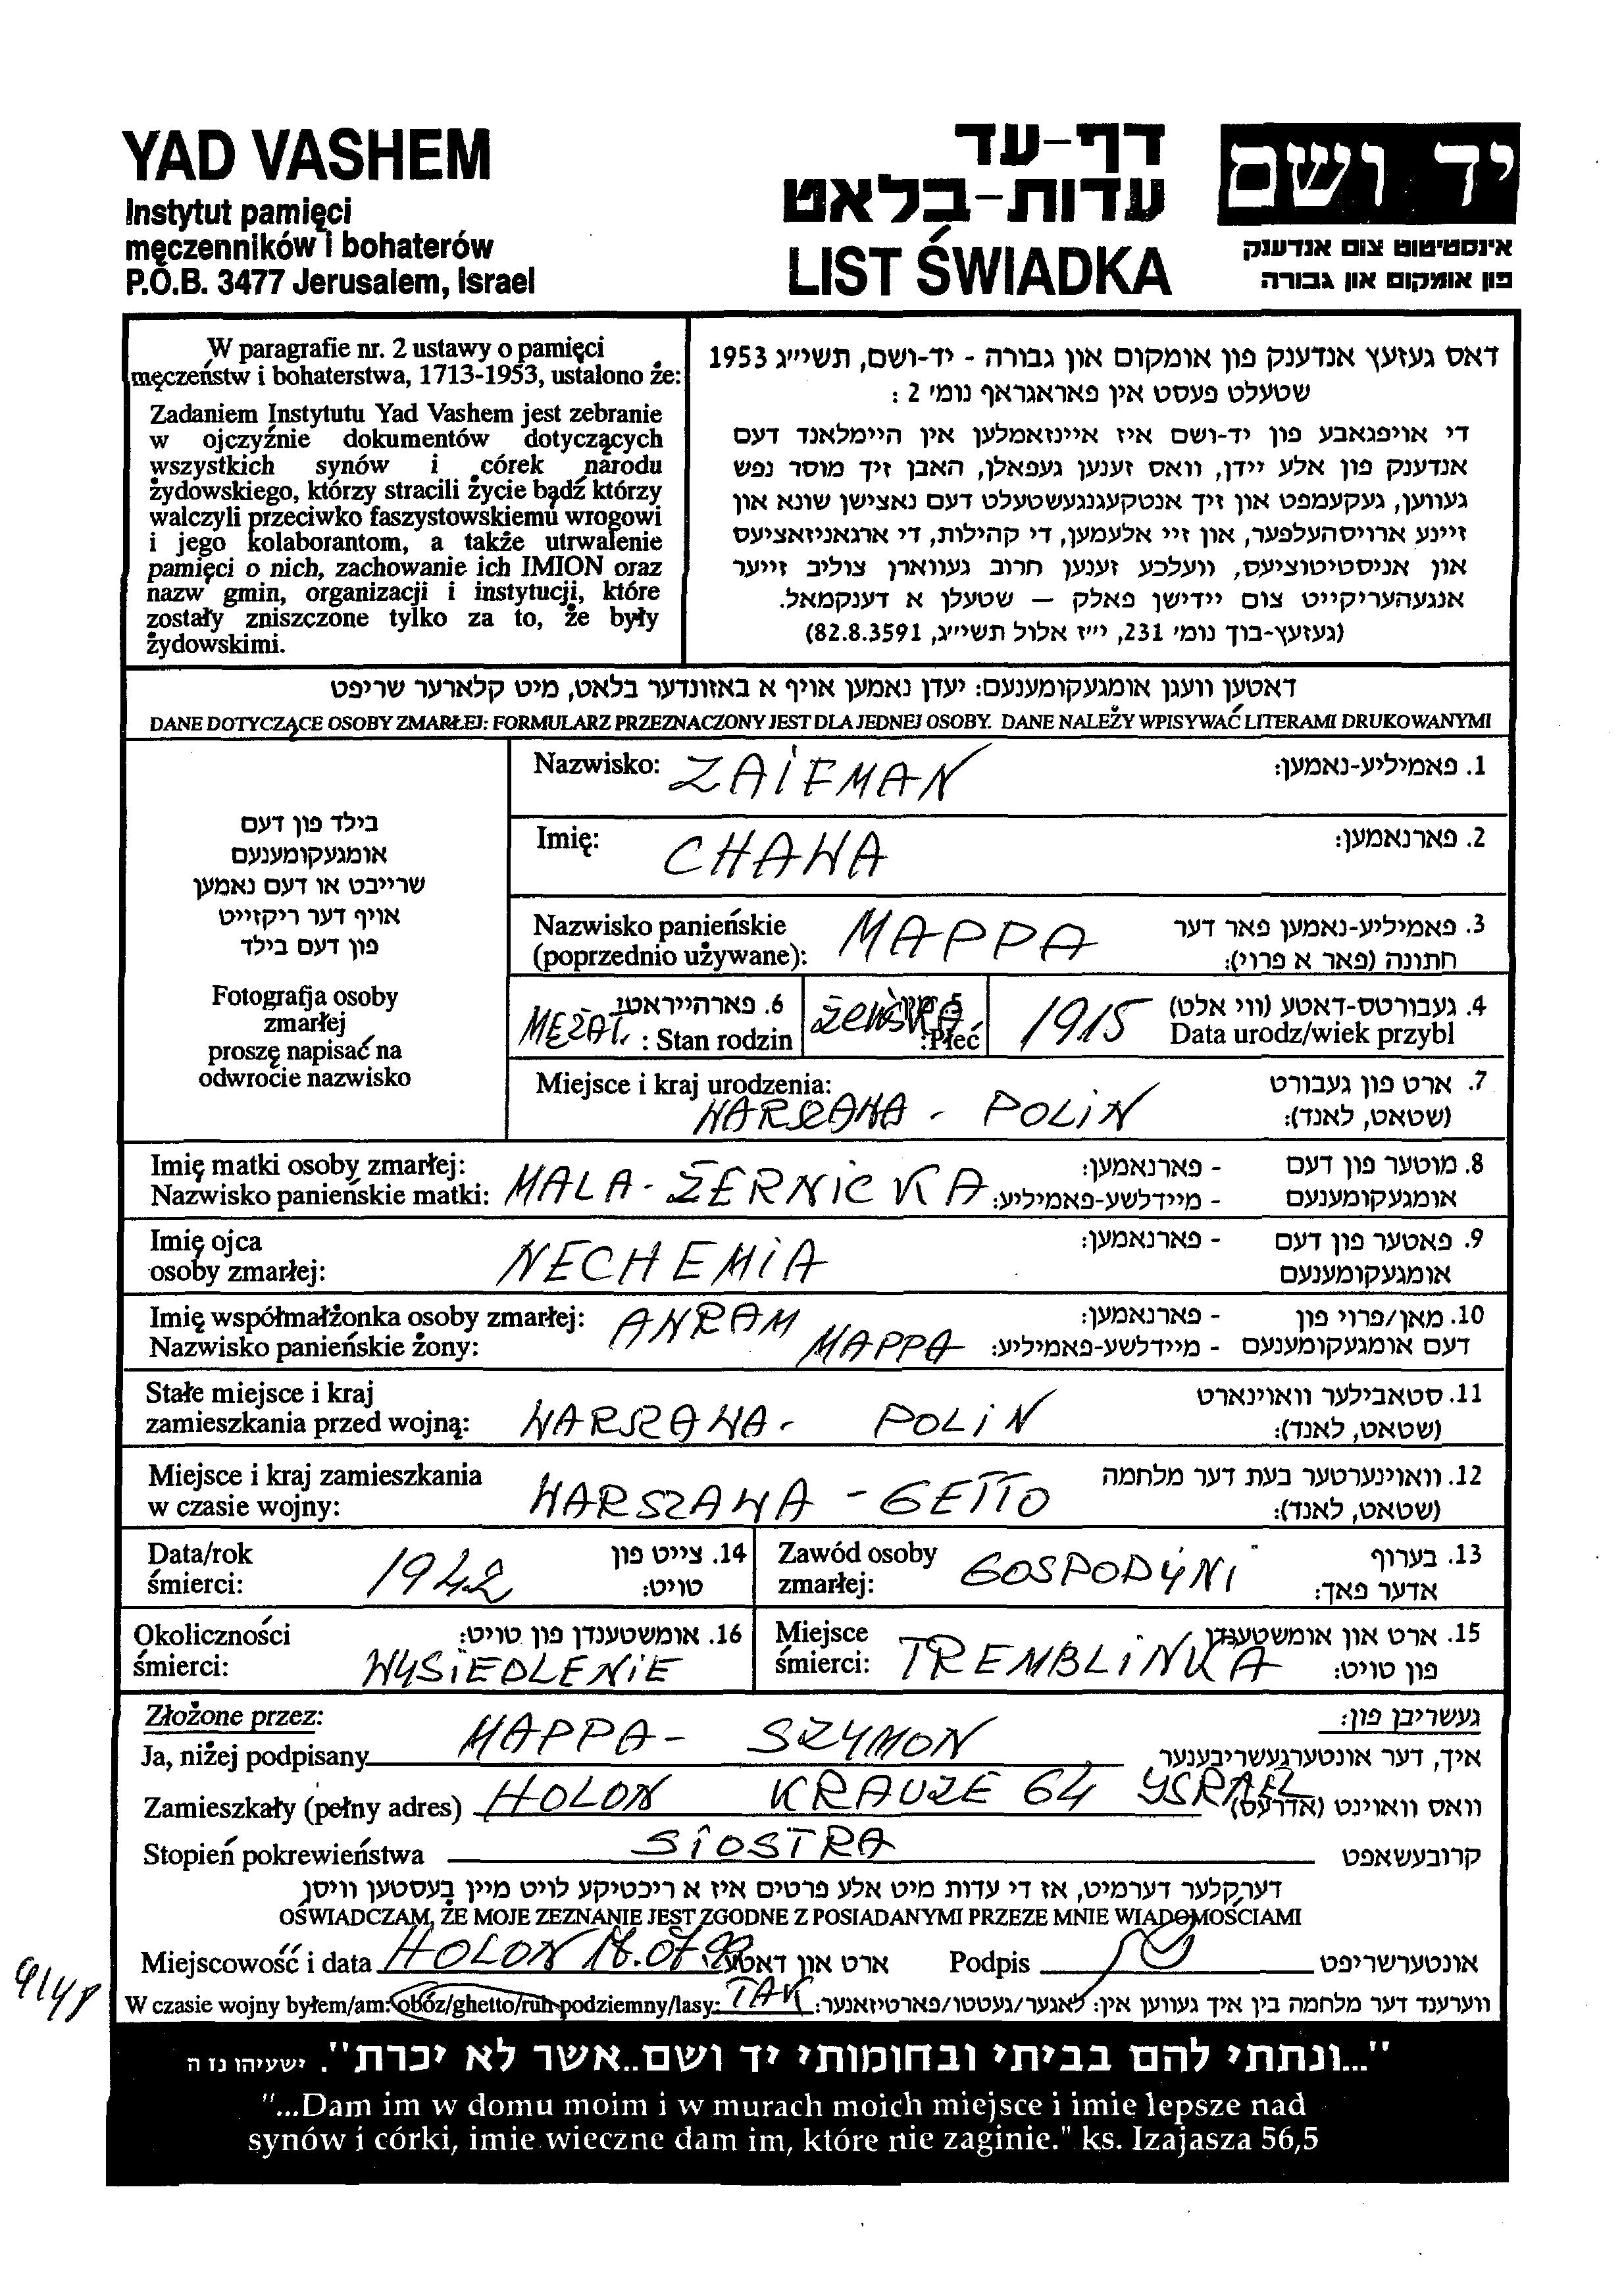 YAD VASHEM
Instytut pamięci
męczenników i bohaterów
P.O.B. 3477 Jerusalem, Israel
דף-עד
עדות-בלאט
LIST ŚWIADKA
יד ושם
אינסטיטוט צום אנדענק
פון אומקום און גבורה
W paragrafie nr. 2 ustawy o pamięci
męczeństw i bohaterstwa, 1713-1953, ustalono że:
Zadaniem Instytutu Yad Vashem jest zebranie
w ojczyźnie dokumentów dotyczących
wszystkich synów i córek narodu
żydowskiego, którzy stracili życie bądź którzy
walczyli przeciwko faszystowskiemu wrogowi
i jego kolaborantom, a także utrwalenie
pamięci o nich, zachowanie ich IMION oraz
nazw gmin, organizacji i instytucji, które
zostały zniszczone tylko za to, że były
żydowskimi.
דאס געזעץ אנדענק פון אומקום און גבורה - יד-ושם, תשי״ג 1953
שטעלט פעסט אין פאראגראף נומי 2 :
די אויפגאבע פון יד-ושם איז איינזאמלען אין היימלאנד דעם
אנדענק פון אלע יידן, וואס זענען געפאלן, האבן זיך מוסר נפש
געווען, געקעמפט און זיך אנטקעגנגעשטעלט דעם נאצישן שונא און
זיינע ארויסהעלפער, און זיי אלעמען, די קהילות, די ארגאניזאציעס
און אניסטיטוציעס, וועלכע זענען חרוב געווארן צוליב זייער
אנגעהעריקייט צום יידישן פאלק – שטעלן א דענקמאל.
(געזעץ-בוך נומי 231, י״ז אלול תשי״ג, 82.8.3591)
דאטען וועגן אומגעקומענעם: יעדן נאמען אויף א באזונדער בלאט, מיט קלארער שריפט
DANE DOTYCZĄCE OSOBY ZMARŁEJ: FORMULARZ PRZEZNACZONY JEST DLA JEDNEJ OSOBY. DANE NALEŻY WPISYWAĆ LITERAMI DRUKOWANYMI
בילד פון דעם
אומגעקומענעם
שרייבט או דעם נאמען
אויף דער ריקזייט
פון דעם בילד
Fotografja osoby
zmarłej
proszę napisać na
odwrocie nazwisko
Nazwisko: ZAIFMAN 1. פאמיליע-נאמען:
Imię: CHAWA 2. פארנאמען:
Nazwisko panieńskie
(poprzednio używane): MAPPA 3. פאמיליע-נאמען פאר דער
חתונה (פאר א פרוי):
MĘŻAT. 6. פארהייראטט
: Stan rodzin
ŻEŃSKA :Płeć
1915 4. געבורטס-דאטע (ווי אלט)
Data urodz/wiek przybl
Miejsce i kraj urodzenia: 7. ארט פון געבורט
WARSZAWA - POLIN (שטאט, לאנד):
Imię matki osoby zmarłej: - פארנאמען: 8. מוטער פון דעם
Nazwisko panieńskie matki: MALA - ŻERNICKA - מיידלשע-פאמיליע: אומגעקומענעם
Imię ojca - פארנאמען: 9. פאטער פון דעם
osoby zmarłej: NECHEMIA אומגעקומענעם
Imię współmałżonka osoby zmarłej: - פארנאמען: 10. מאן/פרוי פון
Nazwisko panieńskie żony: MAPPA - מיידלשע-פאמיליע: דעם אומגעקומענעם
Stałe miejsce i kraj 11. סטאבילער וואוינארט
zamieszkania przed wojną: WARSZAWA - POLIN (שטאט, לאנד):
Miejsce i kraj zamieszkania 12. וואוינערטער בעת דער מלחמה
w czasie wojny: WARSZAWA - GETTO (שטאט, לאנד):
Data/rok
śmierci: 1942 14. צייט פון
טויט:
Zawód osoby
zmarłej: GOSPODYNI 13. בערוף
אדער פאך:
Okoliczności 16. אומשטענדן פון טויט:
śmierci: WYSIEDLENIE
Miejsce
śmierci: TREMBLINKA 15. ארט און אומשטענדן
פון טויט:
Złożone przez: געשריבן פון:
Ja, niżej podpisany MAPPA - SZYMON איך, דער אונטערגעשריבענער
Zamieszkały (pełny adres) HOLON KRAUZE 64 YSRAEL וואס וואוינט (אדרעס)
Stopień pokrewieństwa SIOSTRA קרובעשאפט
דערקלער דערמיט, אז די עדות מיט אלע פרטים איז א ריכטיקע לויט מיין בעסטען וויסן
OŚWIADCZAM, ŻE MOJE ZEZNANIE JEST ZGODNE Z POSIADANYMI PRZEZE MNIE WIADOMOŚCIAMI
Miejscowość i data HOLON ארט און דאטע Podpis אונטערשריפט
W czasie wojny byłem/am: obóz/ghetto/ruh podziemny/lasy: TAK ווערענד דער מלחמה בין איך געווען אין: לאגער/געטטו/פארטיזאנער:
"...ונתתי להם בביתי ובחומותי יד ושם..אשר לא יכרת". ישעיהו נז ה
"...Dam im w domu moim i w murach moich miejsce i imie lepsze nad
synów i córki, imie wieczne dam im, które nie zaginie." ks. Izajasza 56,5